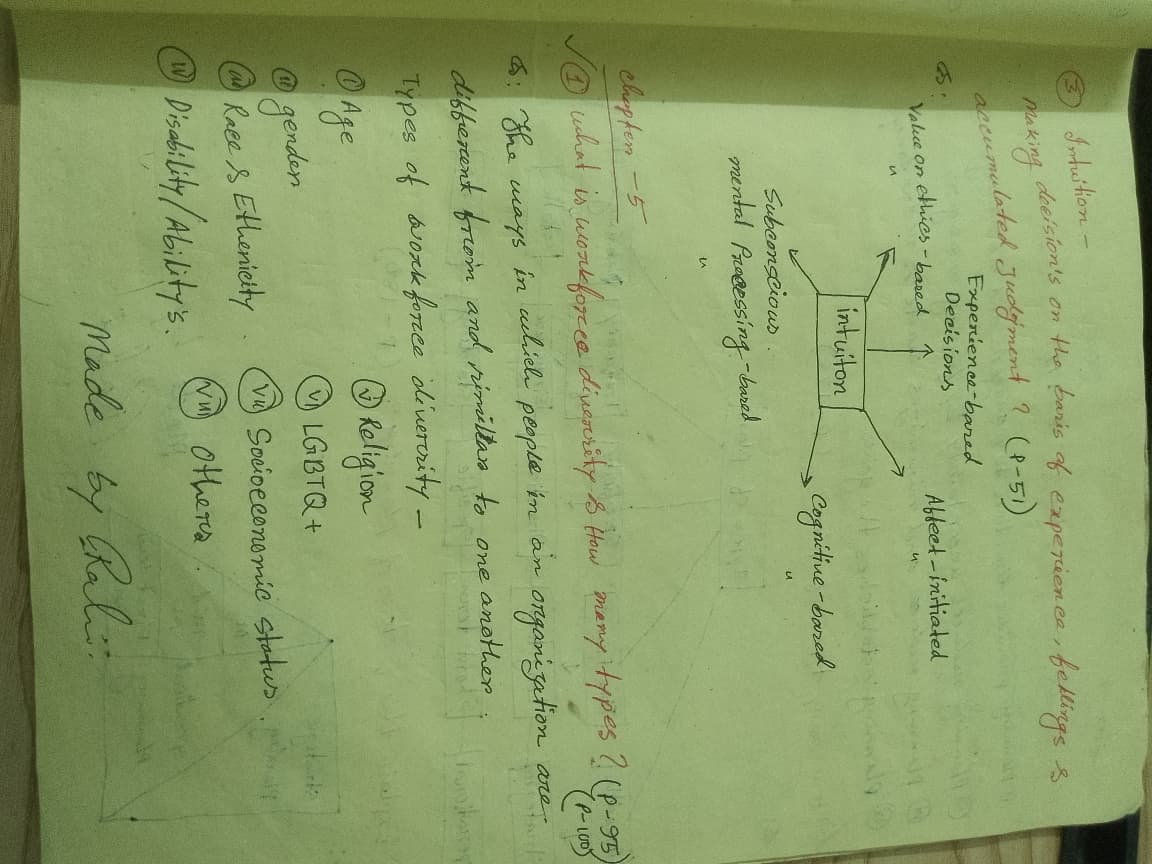 ③ Intuition -
making decision's on the basis of experience, fellings &
accumulated Judgment ? (P-51)
Experience-based
Decisions
Value or ethics-based
"
Affect-initiated
"
intuiton
Subconscious
mental Processing-based
"
Cognitive-based
"
chapter - 5
① what is workforce diversity & How many types ? (P-95)
(P-100)
The ways in which people in an organization are
different from and similar to one another.
Types of workforce diversity -
ⓘ Age
ⓥ Religion
ⓘⓘ gender
ⓥⓘ LGBTQ+
ⓘⓘⓘ Race & Ethenicity
ⓥⓘⓘ Socioeconomic status.
ⓘⓥ Disability/Ability's.
ⓥⓘⓘⓘ Others.
Made by